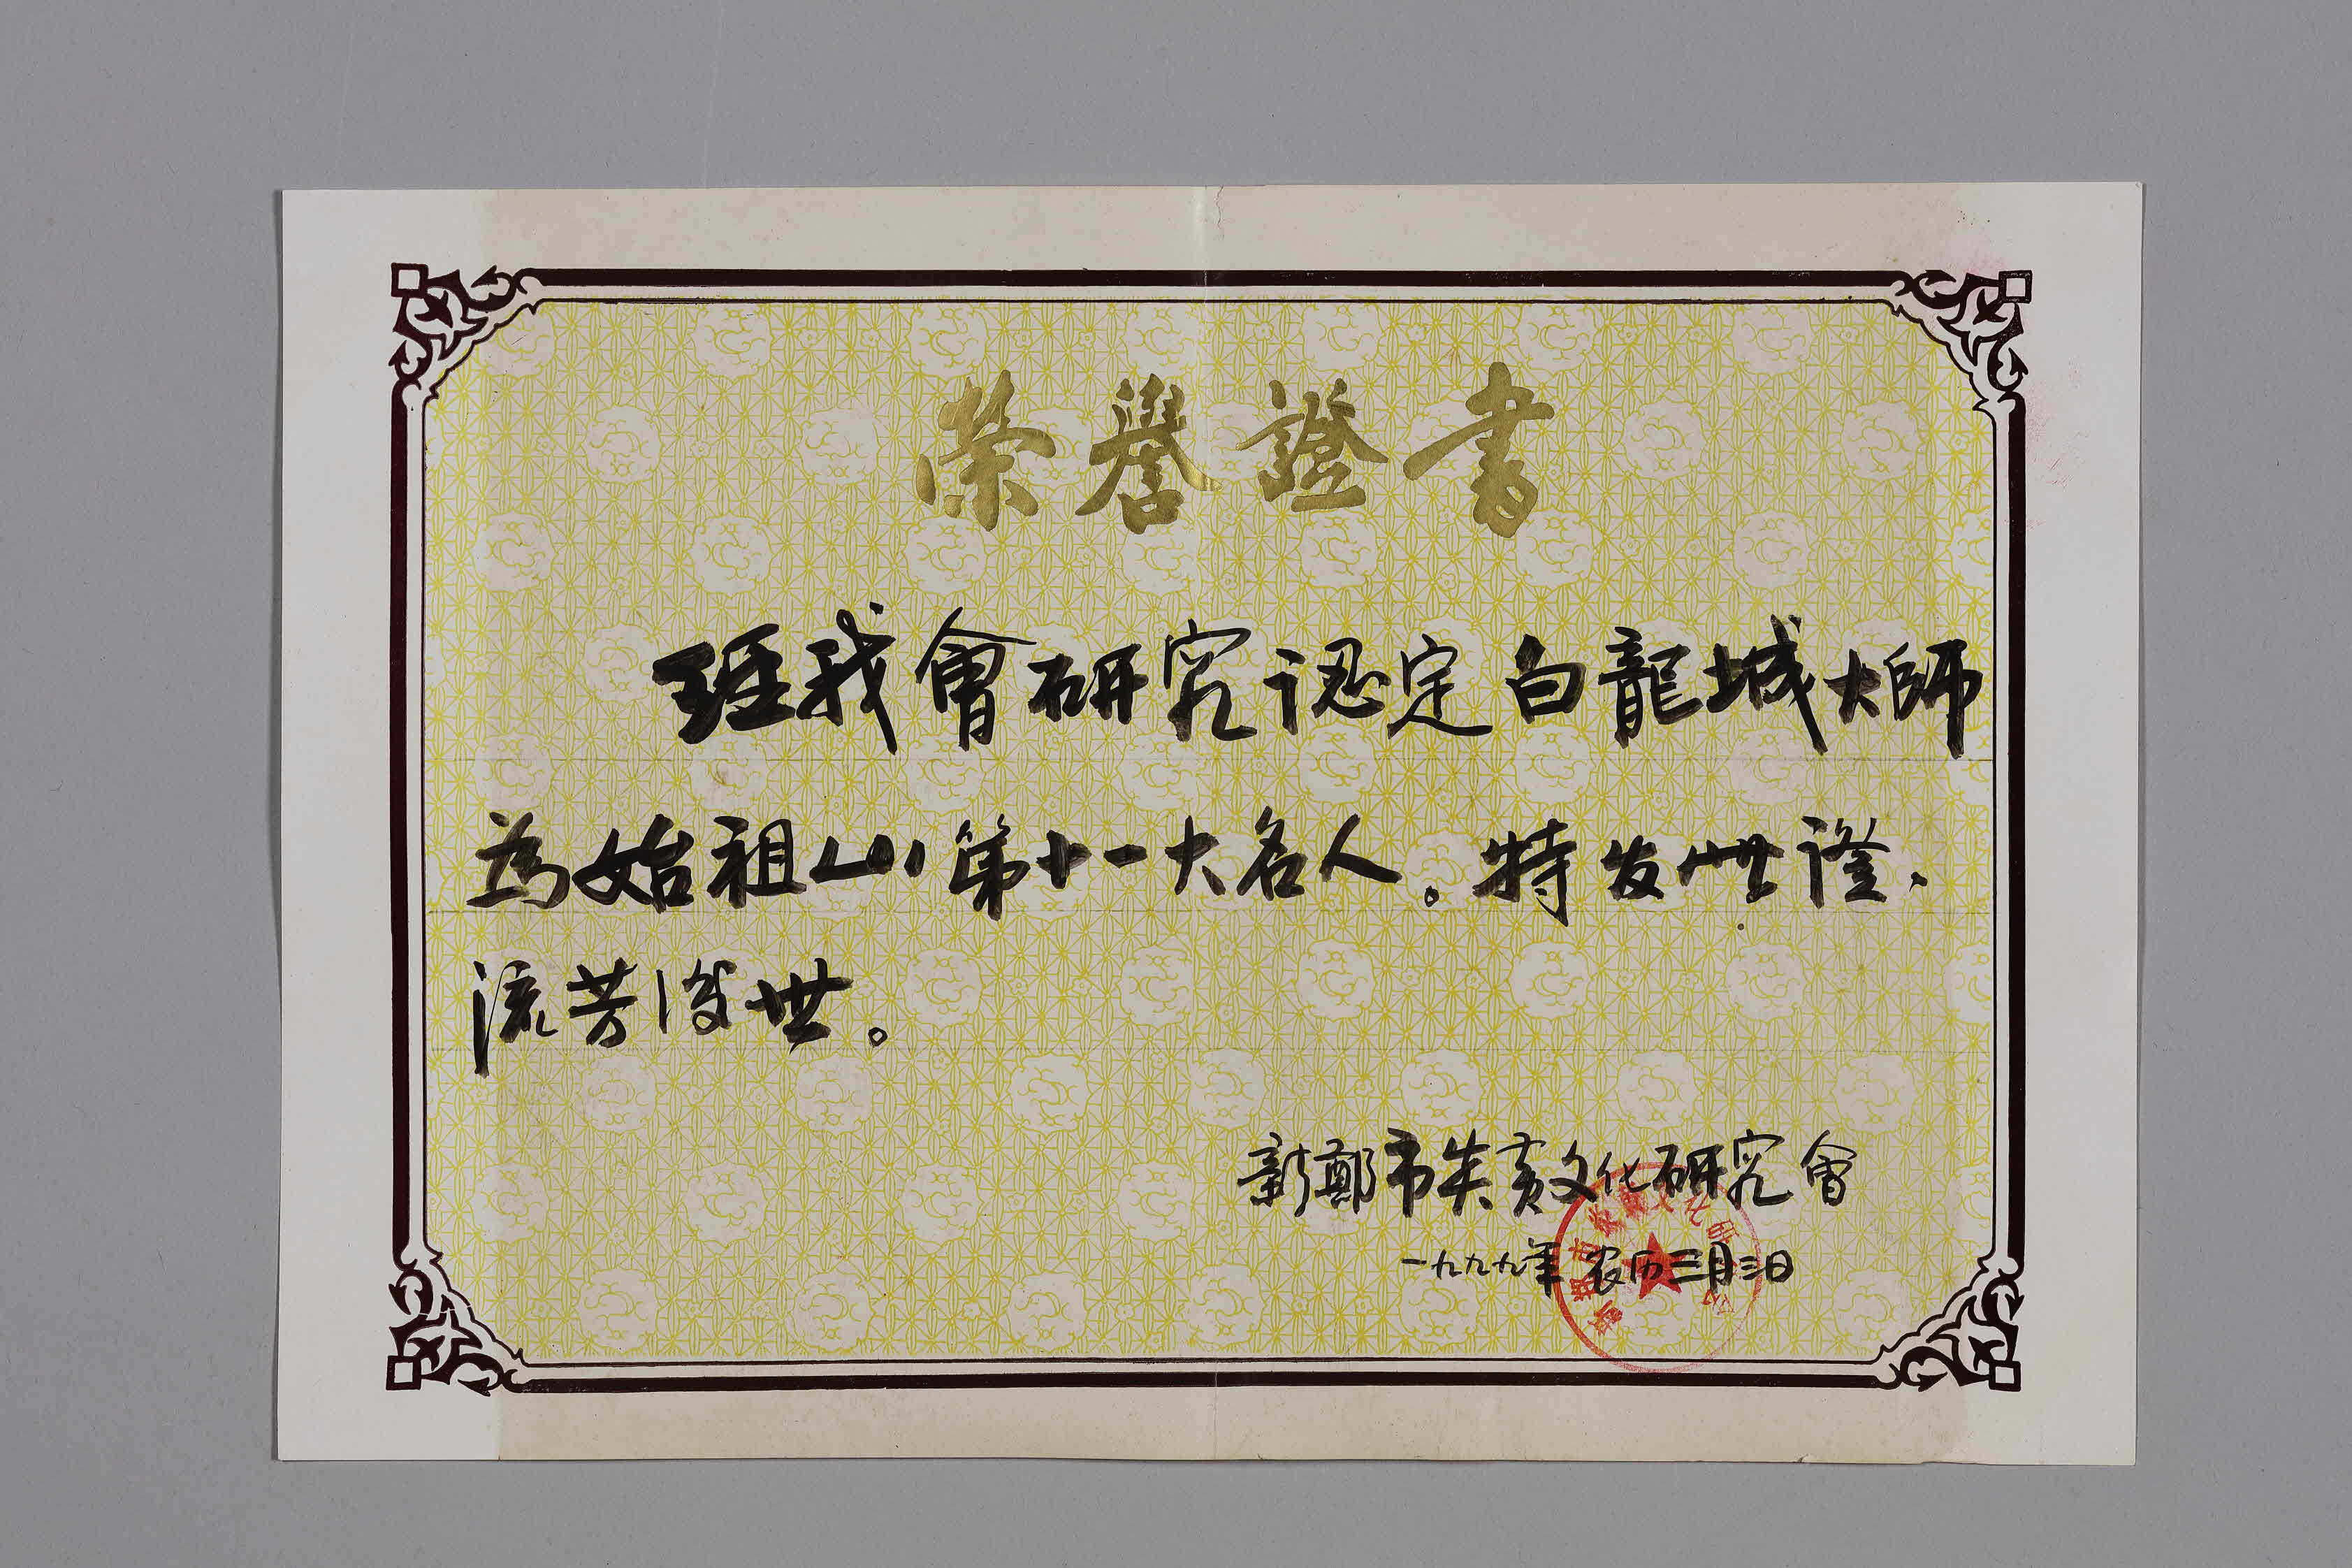 榮譽證書
經我會研究認定白龍城大師
為始祖山第十一大名人。特发此證、
流芳後世。
新鄭市炎黄文化研究會
一九九九年 农历三月三日
新鄭市炎黄文化研究会